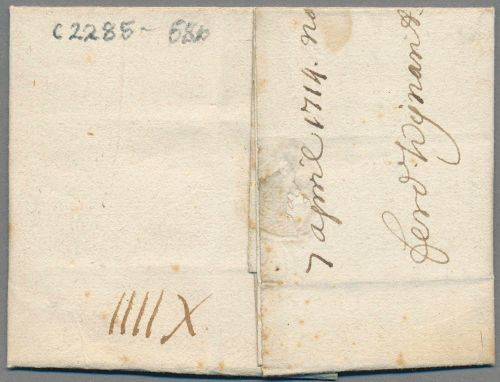 C 2285 - 580
7 april 1714. no
ferd. Wijnants
IIIII X